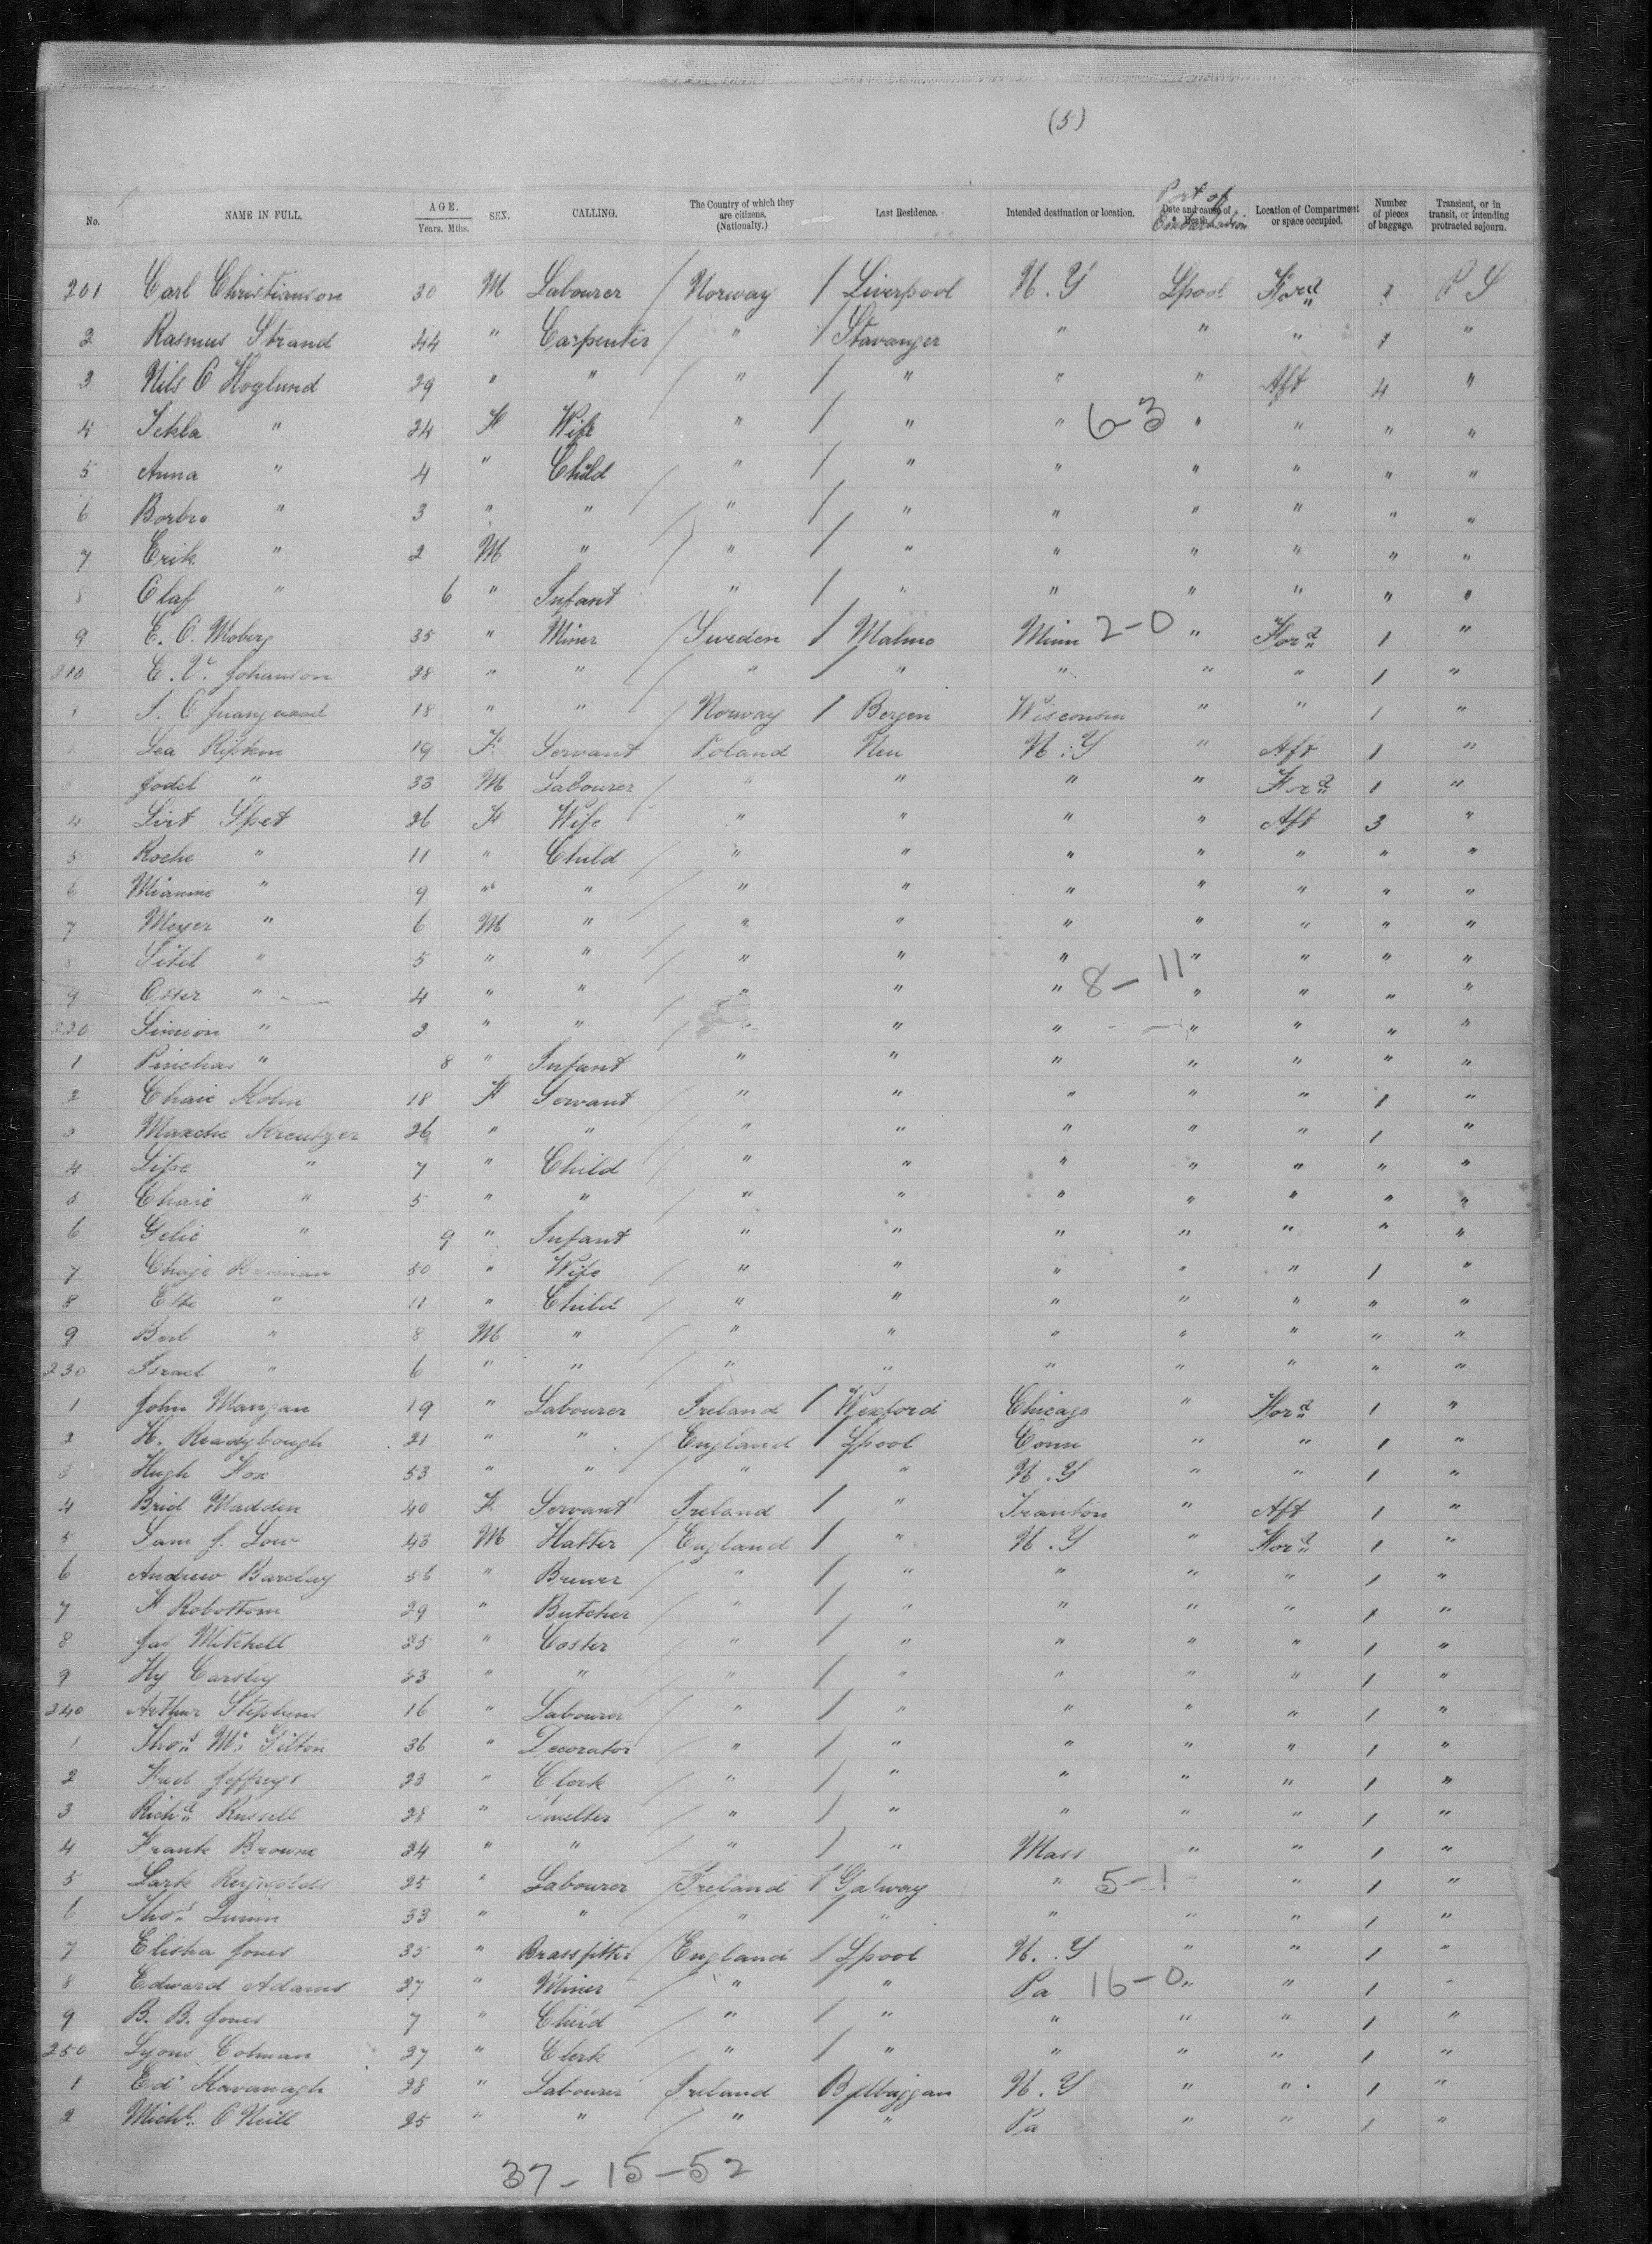 (5)
Port of Embarkation
No. NAME IN FULL. AGE. Years. Mths. SEX. CALLING. The Country of which they are citizens. (Nationalty.) Last Residence. Intended destination or location. Date and cause of Death. Location of Compartment or space occupied. Number of pieces of baggage. Transient, or in transit, or intending protracted sojourn.
201 Carl Christianson 30 M Labourer / Norway / Liverpool N.Y Lpool For'd 1 P S
2 Rasmus Strand 44 " Carpenter / " / Stavanger " " " 1 "
3 Nils O Hoglund 29 " " / " / " " " Aft 4 "
4 Tekla " 24 F Wife " / " " 6-3 " " " "
5 Anna " 4 " Child / " / " " " " " "
6 Borbro " 3 " " / " / " " " " " "
7 Erik " 2 M " / " / " " " " " "
8 Olaf " 6 " Infant " / " " " " " "
9 E. O. Moberg 35 " Miner / Sweden / Malmo Minn 2-0 " For'd 1 "
210 E. V. Johanson 28 " " / " / " " " " 1 "
1 18 " " / Norway / Bergen Wisconsin " " 1 "
Lea Ripkin 19 F Servant / Poland Neu N.Y " Aft 1 "
Jodel " 33 M Labourer / " " " " For'd 1 "
4 Lirt Spet 26 F Wife / " " " " Aft 3 "
5 Roche " 11 " Child / " " " " " " "
6 Mianne " 9 " " / " " " " " " "
7 Meyer " 6 M " / " " " " " " "
8 Sitil " 5 " " / " " " " " " "
9 Oster " 4 " " / " " " 8-11 " " " "
220 Simion " 2 " " / " " " " " " "
1 Pinchas " 8 " Infant " " " " " " "
2 Chaie Kohn 18 F Servant / " " " " " 1 "
3 Masche Kreutzer 26 " " / " " " " " 1 "
4 Lipe " 7 " Child / " " " " " " "
5 Chaie " 5 " " / " " " " " " "
6 Gelie " 9 " Infant " " " " " " "
7 Chaje 50 " Wife / " " " " " 1 "
8 Ette " 11 " Child / " " " " " " "
9 Berl " 8 M " / " " " " " " "
230 Israel " 6 " " / " " " " " " "
1 John Mangan 19 " Labourer / Ireland / Wexford Chicago " For'd 1 "
2 H. Readybough 21 " " / England / Lpool Conn " " 1 "
3 Hugh Fox 53 " " / " / " N.Y " " 1 "
4 Brid Madden 40 F Servant / Ireland / " Tranton " Aft 1 "
5 Sam J. Low 43 M Hatter / England / " N.Y " For'd 1 "
6 Andrew Barclay 56 " Brewer / " / " " " " 1 "
7 F Robottom 29 " Butcher / " / " " " " 1 "
8 Jas Mitchell 25 " Coster / " / " " " " 1 "
9 Hy Carsley 23 " " / " / " " " " 1 "
240 Arthur Stephens 16 " Labourer / " / " " " " 1 "
1 Thos Mc Tilton 36 " Decorator / " / " " " " 1 "
2 Fred Jeffreys 23 " Clerk / " / " " " " 1 "
3 Rich'd Russell 28 " Smelter / " / " " " " 1 "
4 Frank Browne 24 " " / " / " Mass " " 1 "
5 Lark Reynolds 25 " Labourer / Ireland / Galway " 5-1 " " 1 "
6 Thos Quinn 33 " " / " " " " " 1 "
7 Elisha Jones 35 " Brassfitter / England / Lpool N.Y " " 1 "
8 Edward Adams 27 " Miner / " / " Pa 16-0 " " 1 "
9 B. B. Jones 7 " Child / " / " " " " 1 "
250 Lyons Colman 27 " Clerk / " / " " " " 1 "
1 Ed' Kavanagh 28 " Labourer / Ireland Balbriggan N.Y " " 1 "
2 Michl. O'Neill 25 " " / " " Pa " " 1 "
37-15-52